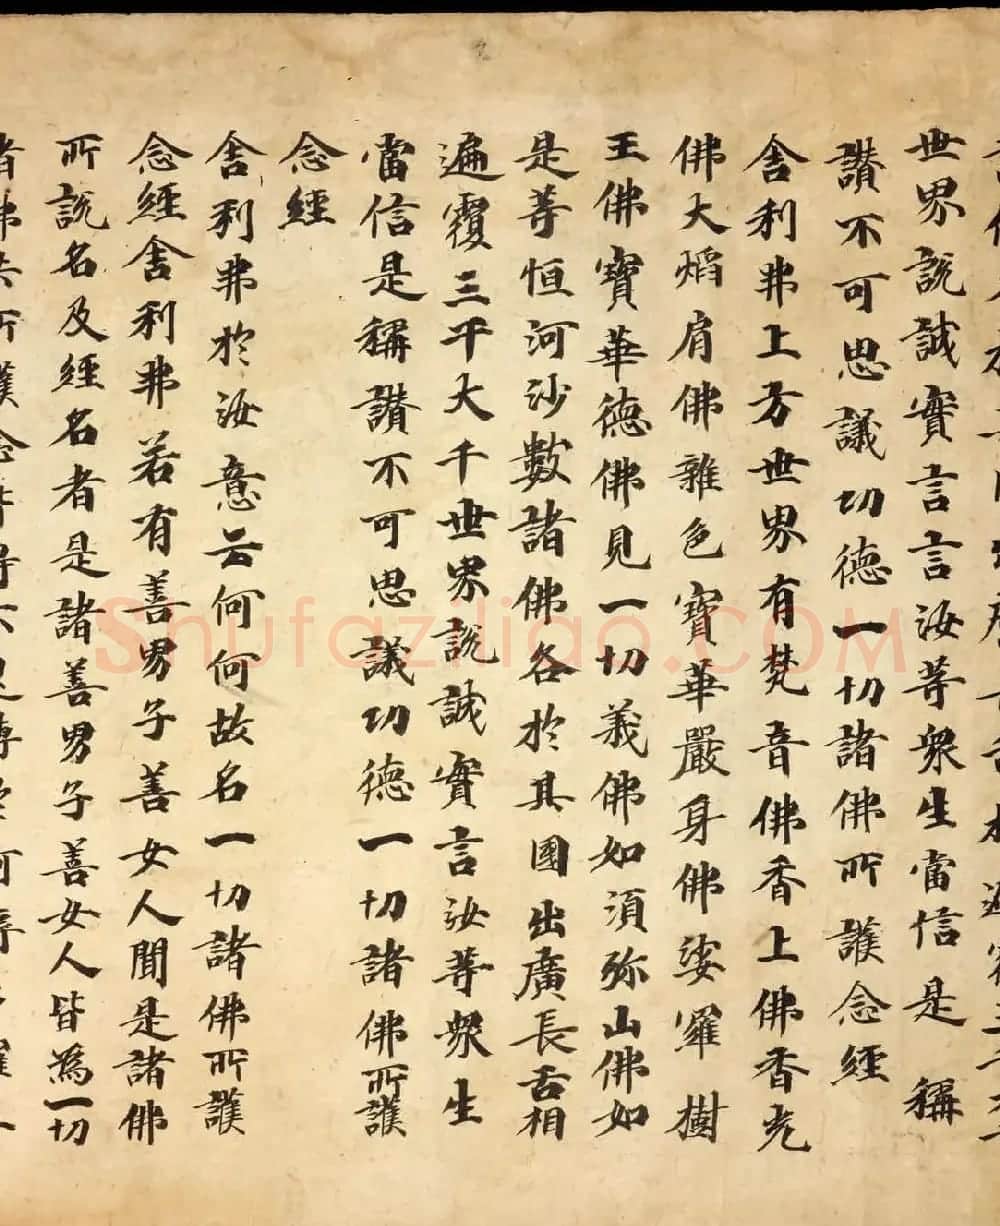 世界說誠實言言汝等衆生當信是稱
讃不可思議功德一切諸佛所護念經
舍利弗上方世界有梵音佛香上佛香光
佛大焰肩佛雜色寶華嚴身佛娑羅樹
王佛寶華德佛見一切義佛如須弥山佛如
是等恒河沙數諸佛各於其國出廣長舌相
遍覆三千大千世界說誠實言汝等衆生
當信是稱讃不可思議功德一切諸佛所護
念經
舍利弗於汝意云何何故名一切諸佛所護
念經舍利弗若有善男子善女人聞是諸佛
所說名及經名者是諸善男子善女人皆為一切
Shufaziliao.COM